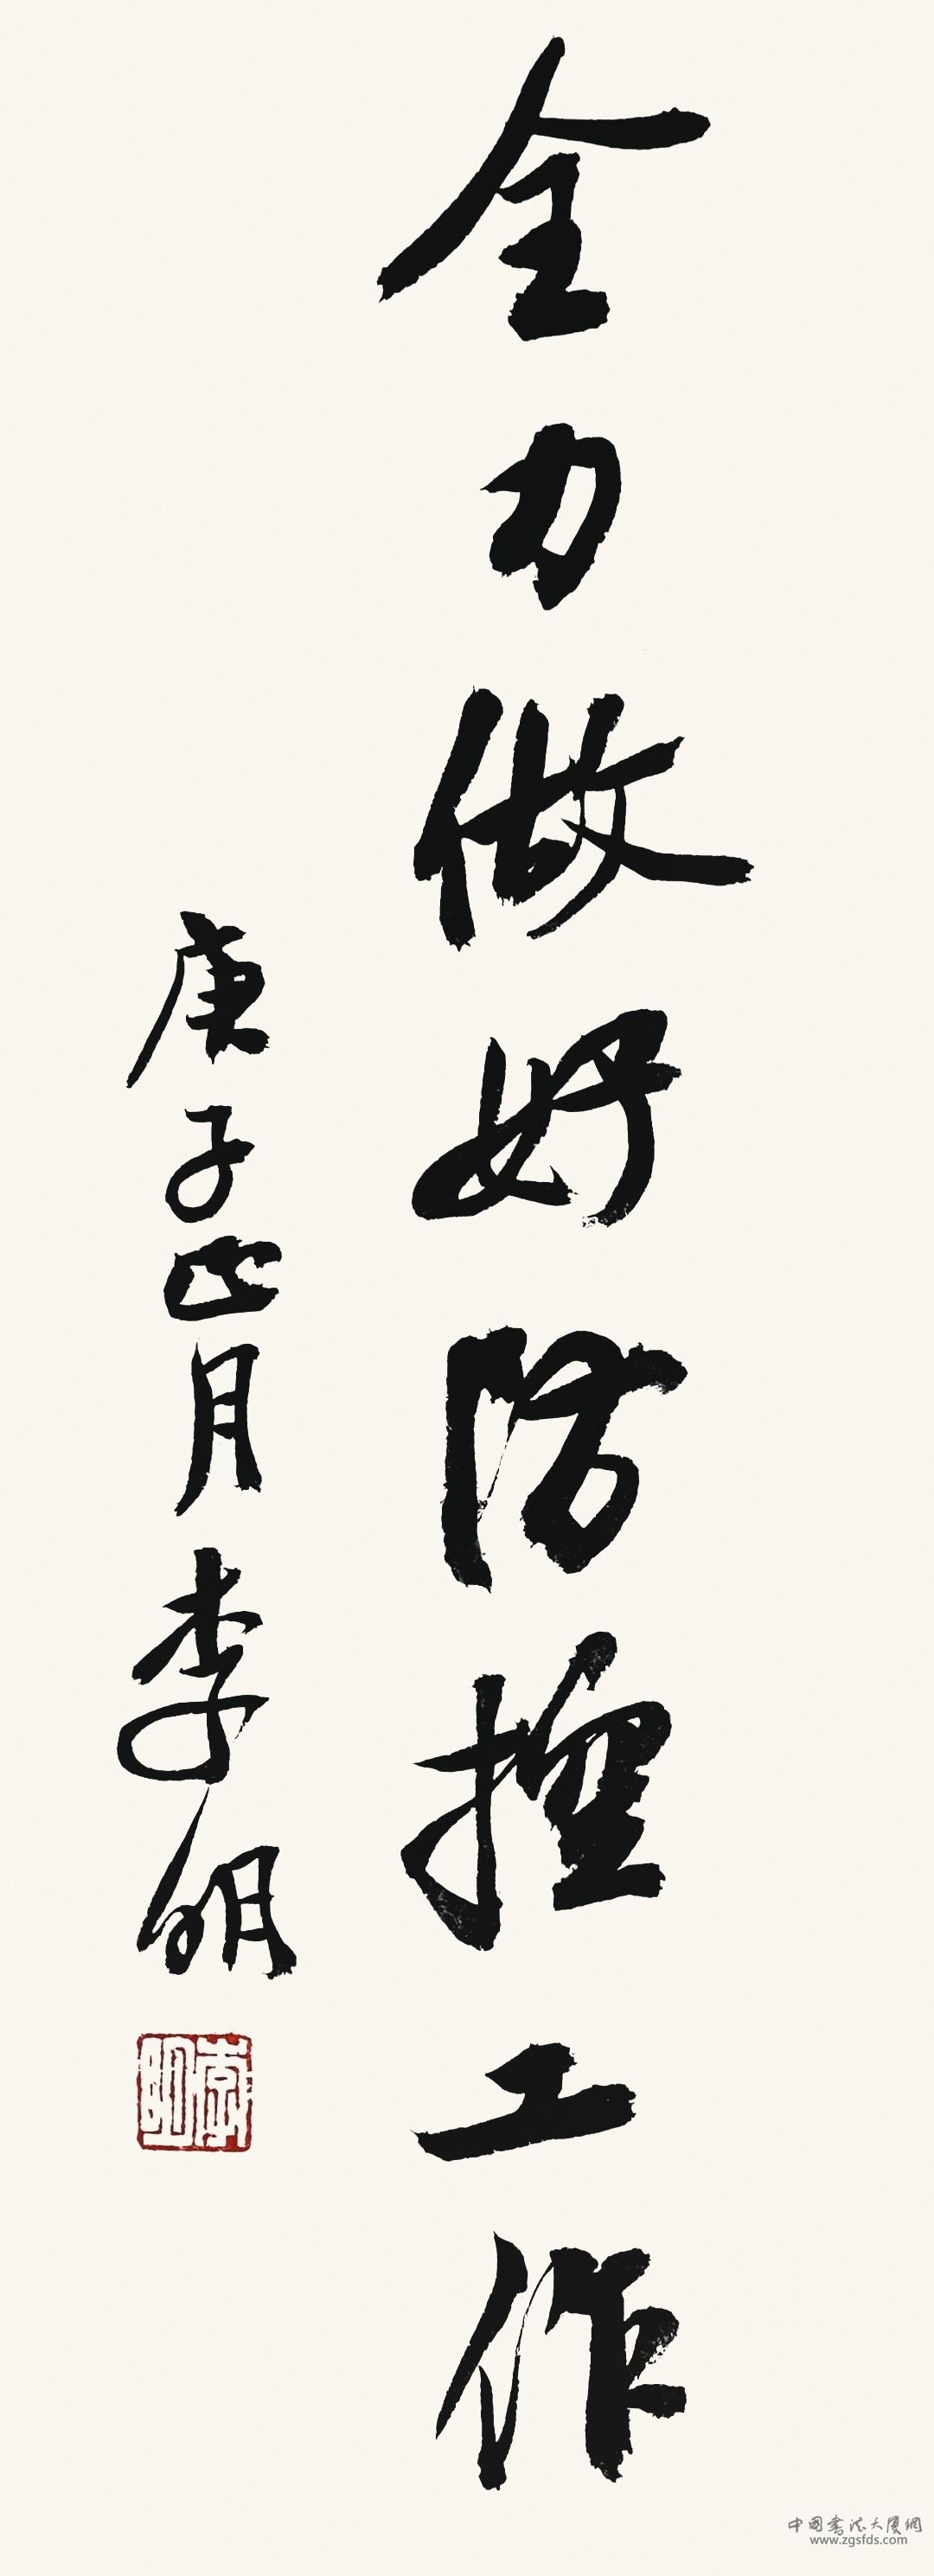 全力做好防控工作
庚子正月李明
李明
中国书法大厦网
www.zgsfds.com